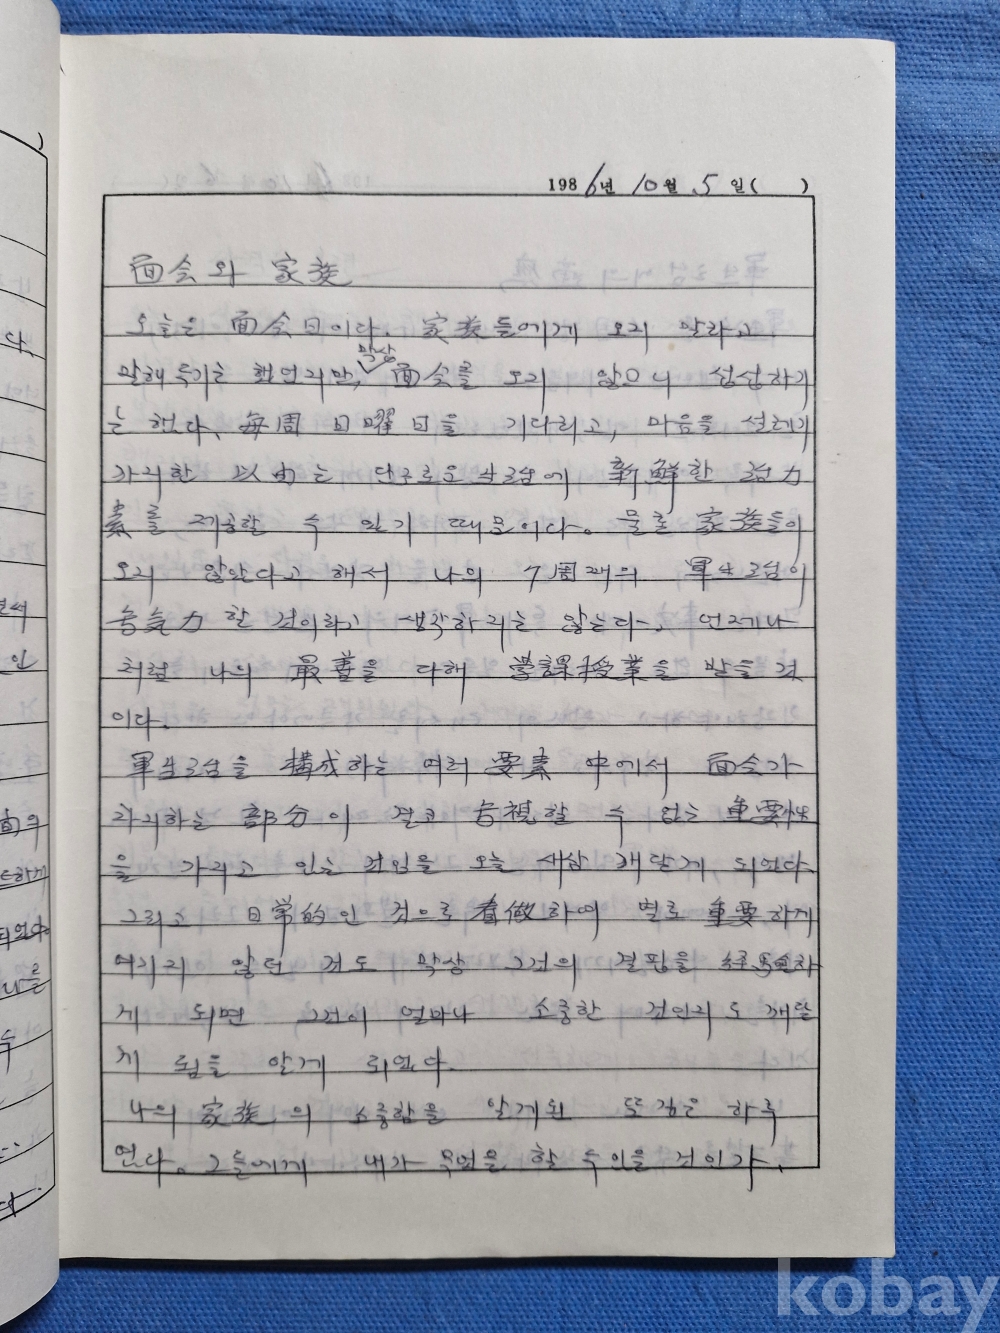 1986년 10월 5일( )
面会와 家族
오늘은 面会日이다. 家族들에게 오지 말라고
말해 두기는 했었지만, 막상 面会를 오지 않으니 섭섭하기
는 했다. 每周 日曜日을 기다리고, 마음을 설레기
까지한 以由는 단조로운 生活에 新鮮한 活力
素를 제공할 수 있기 때문이다. 물론 家族들이
오지 않았다고 해서 나의 7周째의 軍生活이
할 것이라고 생각하지는 않는다. 언제나
처럼 나의 最善을 다해 学課授業을 받을 것
이다.
軍生活을 構成하는 여러 要素 中에서 面会가
차지하는 部分이 결코 둡視할 수 없는 重要性
을 가지고 있는 것임을 오늘 새삼 깨닫게 되었다.
그리고 日常的인 것으로 看做하여 별로 重要하게
여기지 않던 것도 막상 그것의 결핍을 하
게 되면 그것이 얼마나 소중한 것인지도 깨닫
게 됨을 알게 되었다.
나의 家族의 소중함을 알게된 또 하루
였다. 그들에게 내가 무엇을 할 수 있을 것인가,
다.
인
面의
수
kobay